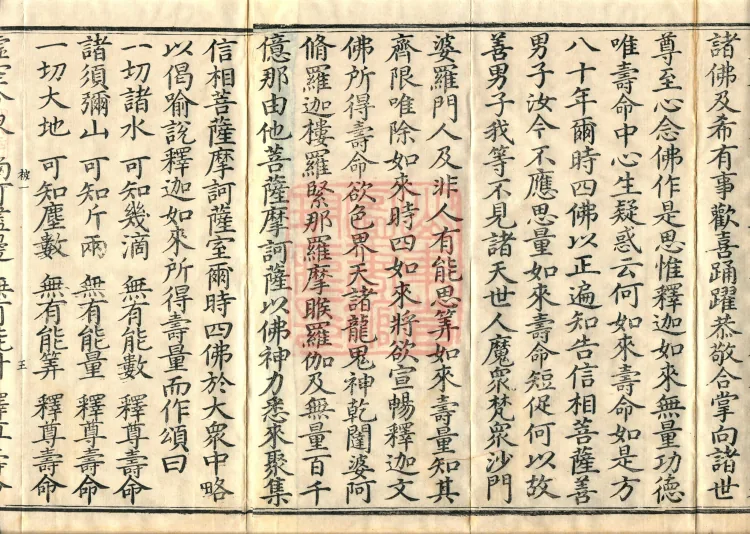 諸佛及希有事歡喜踊躍恭敬合掌向諸世
尊至心念佛作是思惟釋迦如來無量功德
唯壽命中心生疑惑云何如來壽命如是方
八十年爾時四佛以正遍知告信相菩薩善
男子汝今不應思量如來壽命短促何以故
善男子我等不見諸天世人魔衆梵衆沙門
婆羅門人及非人有能思筭如來壽量知其
齊限唯除如來時四如來將欲宣暢釋迦文
佛所得壽命欲色界天諸龍鬼神乾闥婆阿
脩羅迦樓羅緊那羅摩睺羅伽及無量百千
億那由他菩薩摩訶薩以佛神力悉來聚集
信相菩薩摩訶薩室爾時四佛於大衆中略
以偈喻說釋迦如來所得壽量而作頌曰
一切諸水 可知幾滴 無有能數 釋尊壽命
諸須彌山 可知斤兩 無有能量 釋尊壽命
一切大地 可知塵數 無有能筭 釋尊壽命